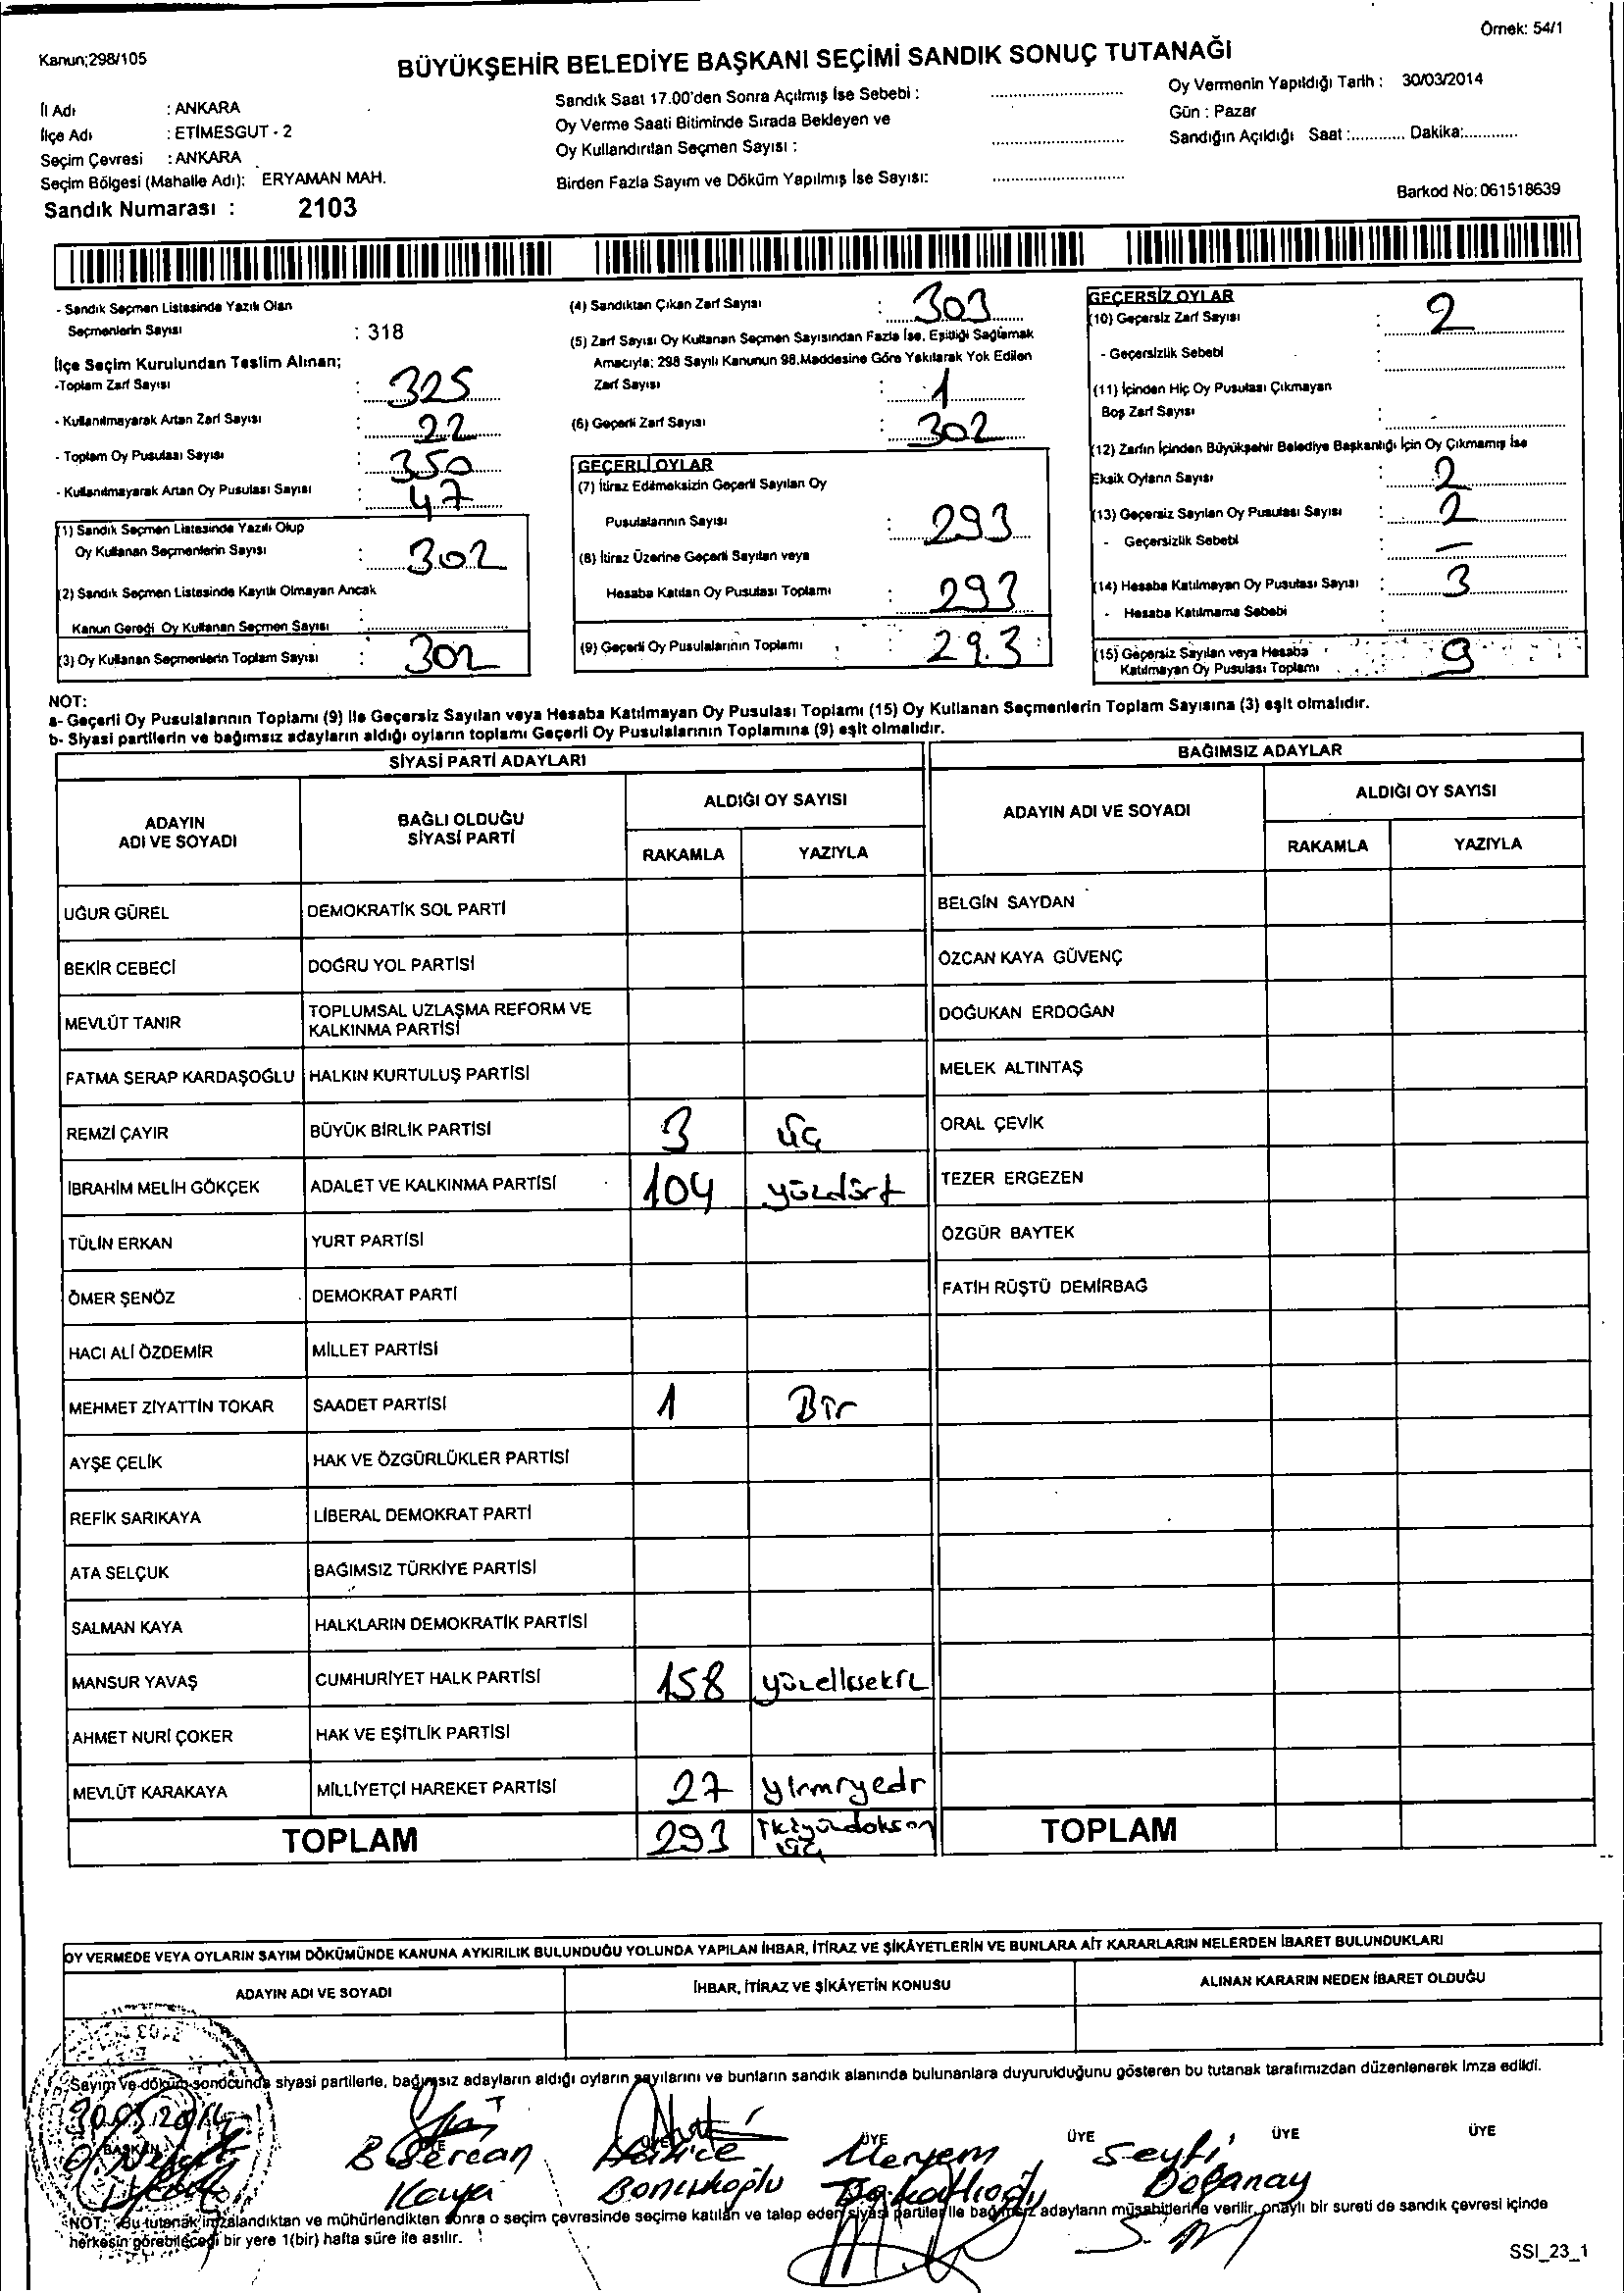 Örnek: 54/1
Kanun;298/105
BÜYÜKŞEHİR BELEDİYE BAŞKANI SEÇİMİ SANDIK SONUÇ TUTANAĞI
İl Adı : ANKARA
İlçe Adı : ETİMESGUT - 2
Seçim Çevresi : ANKARA
Seçim Bölgesi (Mahalle Adı): ERYAMAN MAH.
Sandık Numarası : 2103
Sandık Saat 17.00'den Sonra Açılmış İse Sebebi :
Oy Verme Saati Bitiminde Sırada Bekleyen ve
Oy Kullandırılan Seçmen Sayısı :
Birden Fazla Sayım ve Döküm Yapılmış İse Sayısı:
Oy Vermenin Yapıldığı Tarih : 30/03/2014
Gün : Pazar
Sandığın Açıldığı Saat :............ Dakika:............
Barkod No: 061518639
- Sandık Seçmen Listesinde Yazılı Olan
Seçmenlerin Sayısı : 318
İlçe Seçim Kurulundan Teslim Alınan;
-Toplam Zarf Sayısı : 325
- Kullanılmayarak Artan Zarf Sayısı : 22
- Toplam Oy Pusulası Sayısı : 350
- Kullanılmayarak Artan Oy Pusulası Sayısı : 47
(1) Sandık Seçmen Listesinde Yazılı Olup
Oy Kullanan Seçmenlerin Sayısı : 302
(2) Sandık Seçmen Listesinde Kayıtlı Olmayan Ancak
Kanun Gereği Oy Kullanan Seçmen Sayısı :
(3) Oy Kullanan Seçmenlerin Toplam Sayısı : 302
(4) Sandıktan Çıkan Zarf Sayısı : 303
(5) Zarf Sayısı Oy Kullanan Seçmen Sayısından Fazla İse, Eşitliği Sağlamak
Amacıyla; 298 Sayılı Kanunun 98.Maddesine Göre Yakılarak Yok Edilen
Zarf Sayısı : 1
(6) Geçerli Zarf Sayısı : 302
GEÇERLİ OYLAR
(7) İtiraz Edilmeksizin Geçerli Sayılan Oy
Pusulalarının Sayısı : 293
(8) İtiraz Üzerine Geçerli Sayılan veya
Hesaba Katılan Oy Pusulası Toplamı : 293
(9) Geçerli Oy Pusulalarının Toplamı : 293
GEÇERSİZ OYLAR
(10) Geçersiz Zarf Sayısı : 2
- Geçersizlik Sebebi :
(11) İçinden Hiç Oy Pusulası Çıkmayan
Boş Zarf Sayısı : -
(12) Zarfın İçinden Büyükşehir Belediye Başkanlığı İçin Oy Çıkmamış İse
Eksik Oyların Sayısı : 2
(13) Geçersiz Sayılan Oy Pusulası Sayısı : 2
- Geçersizlik Sebebi : -
(14) Hesaba Katılmayan Oy Pusulası Sayısı : 3
- Hesaba Katılmama Sebebi :
(15) Geçersiz Sayılan veya Hesaba
Katılmayan Oy Pusulası Toplamı : 9
NOT:
a- Geçerli Oy Pusulalarının Toplamı (9) ile Geçersiz Sayılan veya Hesaba Katılmayan Oy Pusulası Toplamı (15) Oy Kullanan Seçmenlerin Toplam Sayısına (3) eşit olmalıdır.
b- Siyasi partilerin ve bağımsız adayların aldığı oyların toplamı Geçerli Oy Pusulalarının Toplamına (9) eşit olmalıdır.
SİYASİ PARTİ ADAYLARI
BAĞIMSIZ ADAYLAR
ADAYIN ADI VE SOYADI
BAĞLI OLDUĞU SİYASİ PARTİ
ALDIĞI OY SAYISI
RAKAMLA YAZIYLA
ADAYIN ADI VE SOYADI
ALDIĞI OY SAYISI
RAKAMLA YAZIYLA
UĞUR GÜREL DEMOKRATİK SOL PARTİ BELGİN SAYDAN
BEKİR CEBECİ DOĞRU YOL PARTİSİ ÖZCAN KAYA GÜVENÇ
MEVLÜT TANIR TOPLUMSAL UZLAŞMA REFORM VE KALKINMA PARTİSİ DOĞUKAN ERDOĞAN
FATMA SERAP KARDAŞOĞLU HALKIN KURTULUŞ PARTİSİ MELEK ALTINTAŞ
REMZİ ÇAYIR BÜYÜK BİRLİK PARTİSİ 3 üç ORAL ÇEVİK
İBRAHİM MELİH GÖKÇEK ADALET VE KALKINMA PARTİSİ 104 yüzdört TEZER ERGEZEN
TÜLİN ERKAN YURT PARTİSİ ÖZGÜR BAYTEK
ÖMER ŞENÖZ DEMOKRAT PARTİ FATİH RÜŞTÜ DEMİRBAĞ
HACI ALİ ÖZDEMİR MİLLET PARTİSİ
MEHMET ZİYATTİN TOKAR SAADET PARTİSİ 1 Bir
AYŞE ÇELİK HAK VE ÖZGÜRLÜKLER PARTİSİ
REFİK SARIKAYA LİBERAL DEMOKRAT PARTİ
ATA SELÇUK BAĞIMSIZ TÜRKİYE PARTİSİ
SALMAN KAYA HALKLARIN DEMOKRATİK PARTİSİ
MANSUR YAVAŞ CUMHURİYET HALK PARTİSİ 158 yüzellisekiz
AHMET NURİ ÇOKER HAK VE EŞİTLİK PARTİSİ
MEVLÜT KARAKAYA MİLLİYETÇİ HAREKET PARTİSİ 27 yirmiyedi
TOPLAM 293 ikiyüzdoksan üç TOPLAM
OY VERMEDE VEYA OYLARIN SAYIM DÖKÜMÜNDE KANUNA AYKIRILIK BULUNDUĞU YOLUNDA YAPILAN İHBAR, İTİRAZ VE ŞİKÂYETLERİN VE BUNLARA AİT KARARLARIN NELERDEN İBARET BULUNDUKLARI
ADAYIN ADI VE SOYADI İHBAR, İTİRAZ VE ŞİKÂYETİN KONUSU ALINAN KARARIN NEDEN İBARET OLDUĞU
Sayım ve döküm sonucunda siyasi partilerle, bağımsız adayların aldığı oyların sayılarını ve bunların sandık alanında bulunanlara duyurulduğunu gösteren bu tutanak tarafımızdan düzenlenerek imza edildi.
30.03.2014
BAŞKAN ÜYE ÜYE ÜYE ÜYE
Sercan Hatice Meryem Seyfi
Kaya Doğanay
NOT: Bu tutanak imzalandıktan ve mühürlendikten sonra o seçim çevresinde seçime katılan ve talep eden siyasi partiler ile bağımsız adayların müşahitlerine verilir, onaylı bir sureti de sandık çevresi içinde
herkesin görebileceği bir yere 1(bir) hafta süre ile asılır.
SSI_23_1